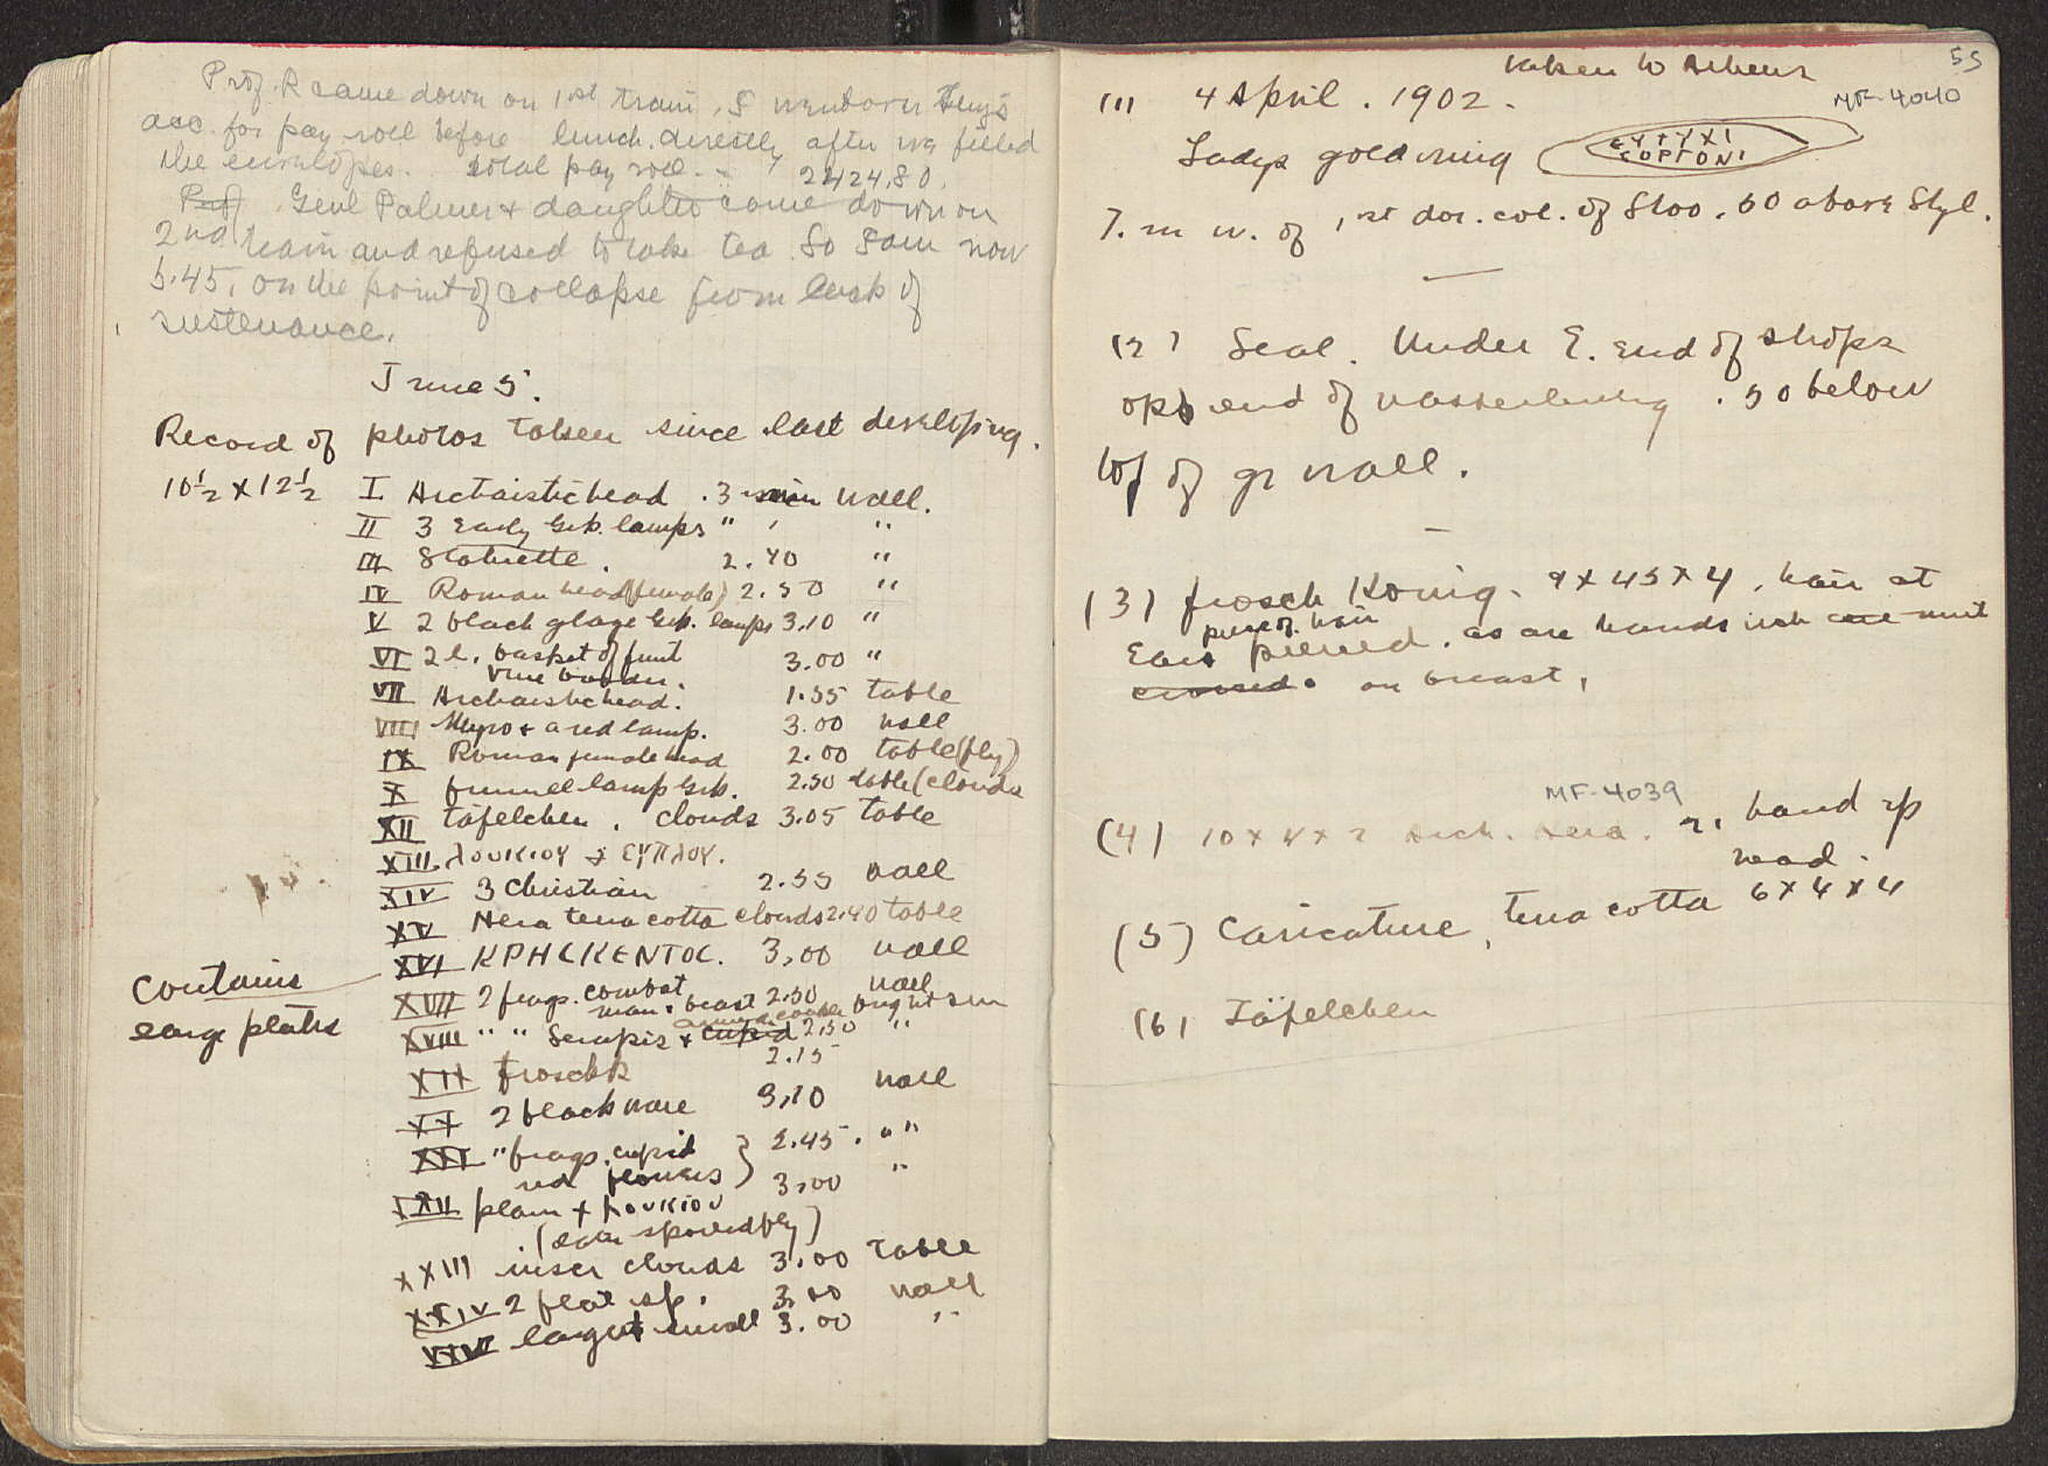 Prof. R came down on 1st train. I went over Benj's
acc. for pay roll before lunch. directly after we filled
the envelopes. total pay roll - 2424.80.
Prof Genl Palmer + daughter came down on
2nd train and refused to take tea. So I am now
5.45, on the point of collapse from lack of
sustenance.
June 5.
Record of photos taken since last developing.
10½ x 12½ I Archaistic head . 3 min wall.
II 3 Early Grk. lamps " "
III Statuette . 2.40 "
IV Roman head (female) 2.50 "
V 2 black glaze Grk. lamps 3.10 "
VI 2 l. basket of fruit 3.00 "
vine border.
VII Archaistic head. 1.55 table
VIII + a red lamp. 3.00 wall
IX Roman female head 2.00 table (fly)
X funnel lamp Grk. 2.50 table (clouds
XII täfelchen . clouds 3.05 table
XIII λουκιου +
XIV 3 Christian 2.55 wall
XV Hera terra cotta clouds 2.40 table
XVI ΚΡΗϹΚΕΝΤΟϹ. 3.00 wall
Contains
large plates
XVII 2 frags. combat wall
man + beast 2.50 bright sun
XVIII " " Serapis + cupid 2.50 "
2.15
XIX froschk
XX 2 black ware 3.10 wall
XXI " frags. cupid 2.45. " "
red flowers
XXII plain + λουκιου 3.00 "
(later spoiled fly)
XXIII inscr clouds 3.00 table
XXIV 2 flat sp. 3.00 wall
XXV large + small 3.00 "
55
taken to Athens
MF-4040
(1) 4 April . 1902.
Ladys gold ring ΕΥΤΥΧΙ
ϹΟΡΤΟΝΙ
7. m w. of 1st dor. col. of Stoa . 60 above Styl.
(2) Seal. Under E. end of shops
opp end of wasserleitung . 50 below
top of gr wall.
(3) frosch König. 9 x 45 x 4, hair at
piece of hair
Ears pierced. as are hands wh are meet
crossed. on breast,
MF-4039
(4) 10 x 4 x 2 Arch. tera. r. hand up
head.
(5) Caricature, terra cotta 6 x 4 x 4
(6) Täfelchen